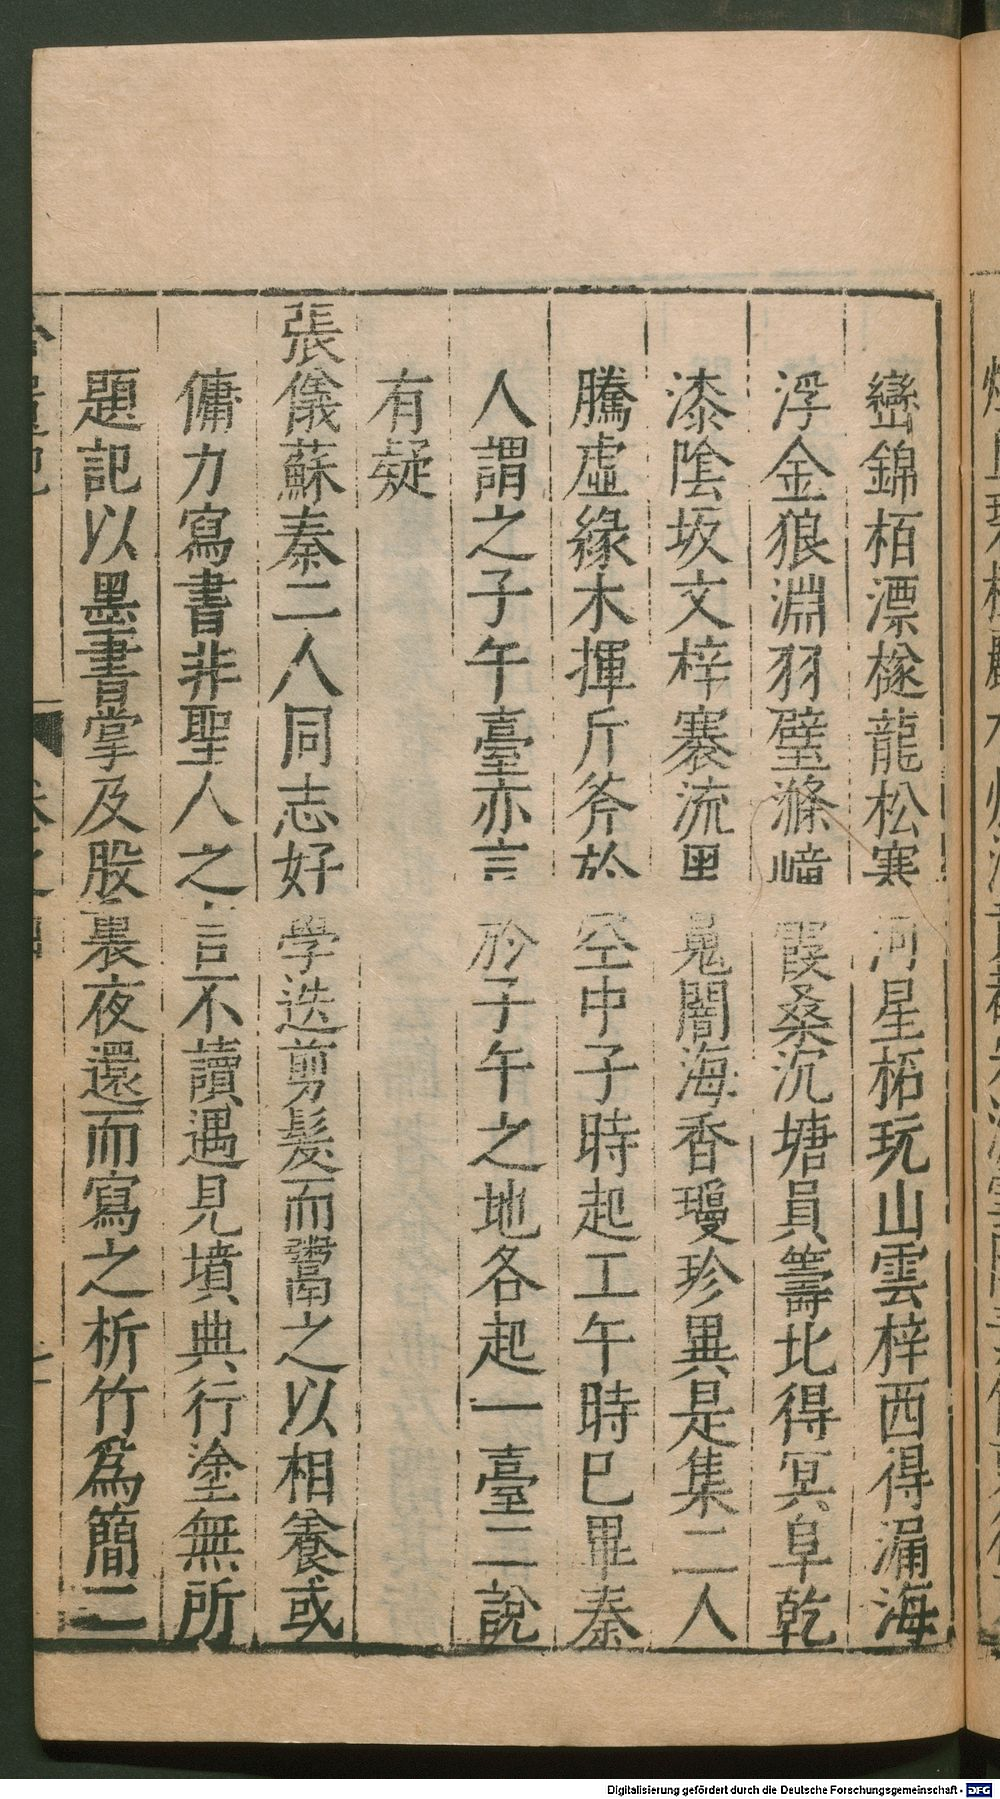 巒錦栢漂檖龍松寒河星柘玩山雲梓西得漏海
浮金狼淵羽璧滌嶂霞桑沉塘員籌北得冥阜乾
漆陰坂文梓褰流黑魄闇海香瓊珍異是集二人
騰虛緣木揮斤斧於空中子時起工午時已畢秦
人謂之子午臺亦言於子午之地各起一臺二說
有疑
張儀蘇秦二人同志好學迭剪髮而鬻之以相養或
傭力寫書非聖人之言不讀遇見墳典行塗無所
題記以墨書掌及股裏夜還而寫之析竹為簡二
Digitalisierung gefördert durch die Deutsche Forschungsgemeinschaft - DFG